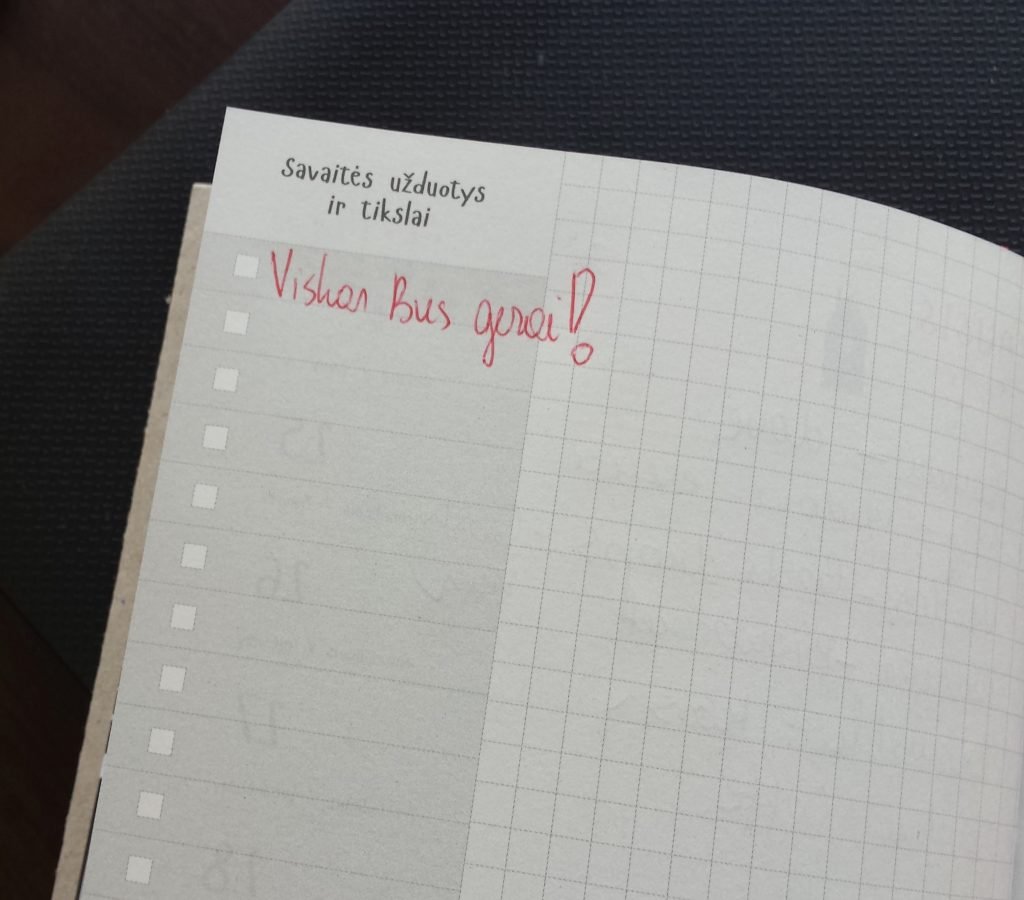 Savaitės užduotys
ir tikslai
Viskas Bus gerai!